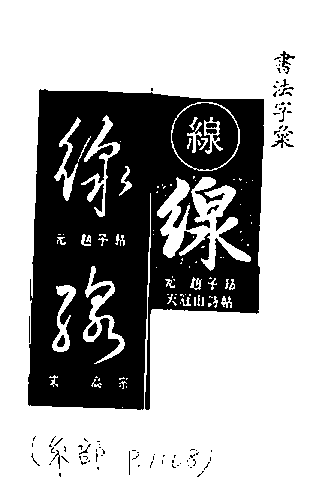 書法字彙
線
線
元 趙子昂
天冠山詩帖
線
元 趙子昂
線
宋 高宗
(糸部 P.1168)